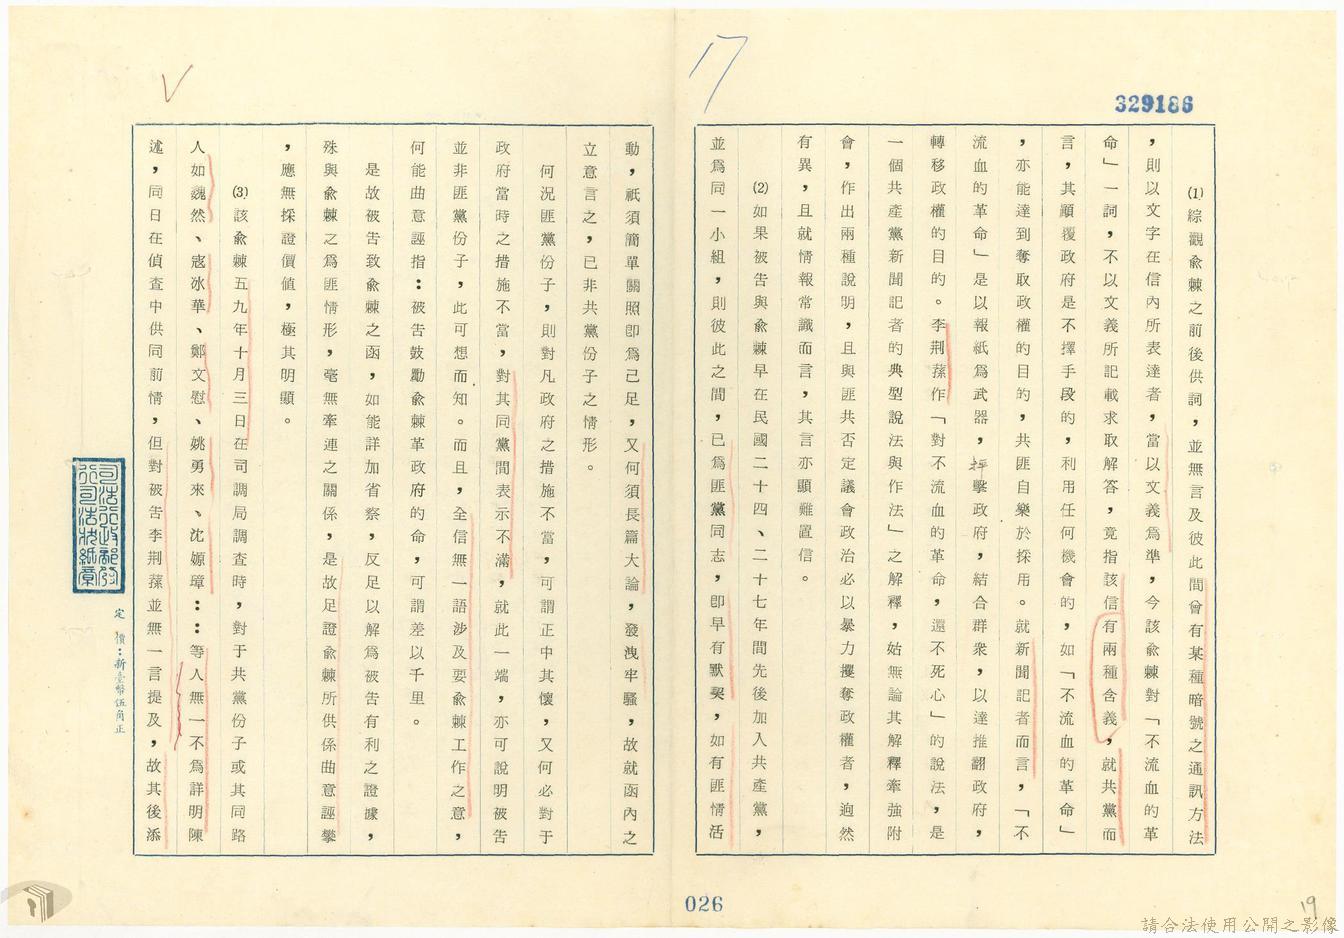 329186
17
⑴綜觀兪棘之前後供詞，並無言及彼此間會有某種暗號之通訊方法
，則以文字在信內所表達者，當以文義爲準，今該兪棘對「不流血的革
命」一詞，不以文義所記載求取解答，竟指該信有兩種含義，就共黨而
言，其顚覆政府是不擇手段的，利用任何機會的，如「不流血的革命」
，亦能達到奪取政權的目的，共匪自樂於採用。就新聞記者而言，「不
流血的革命」是以報紙爲武器，抨擊政府，結合群衆，以達推翻政府，
轉移政權的目的。李荆蓀作「對不流血的革命，還不死心」的說法，是
一個共產黨新聞記者的典型說法與作法」之解釋，姑無論其解釋牽強附
會，作出兩種說明，且與匪共否定議會政治必以暴力攫奪政權者，逈然
有異，且就情報常識而言，其言亦顯難置信。
⑵如果被告與兪棘早在民國二十四、二十七年間先後加入共產黨，
並爲同一小組，則彼此之間，已爲匪黨同志，卽早有默契，如有匪情活
動，祇須簡單關照卽爲已足，又何須長篇大論，發洩牢騷，故就函內之
立意言之，已非共黨份子之情形。
何況匪黨份子，則對凡政府之措施不當，可謂正中其懷，又何必對于
政府當時之措施不當，對其同黨間表示不滿，就此一端，亦可說明被告
並非匪黨份子，此可想而知。而且，全信無一語涉及要兪棘工作之意，
何能曲意誣指：被告鼓勵兪棘革政府的命，可謂差以千里。
是故被告致兪棘之函，如能詳加省察，反足以解爲被告有利之證據，
殊與兪棘之爲匪情形，毫無牽連之關係，是故足證兪棘所供係曲意誣攀
，應無採證價値，極其明顯。
⑶該兪棘五九年十月三日在司調局調查時，對于共黨份子或其同路
人如魏然、寇冰華、鄭文慰、姚勇來、沈嫄璋：：等人無一不爲詳明陳
述，同日在偵查中供同前情，但對被告李荆蓀並無一言提及，故其後添
司法行政部發
行司法狀紙章
定價：新臺幣伍角正
026
19
請合法使用公開之影像